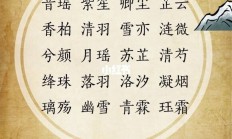 音瑶 紫笙 卿尘 芷云
香柏 清羽 雪亦 涟微
兮颜 月瑶 苏芷 清芍
绛珠 落羽 洛汐 凝烟
璃殇 幽雪 青霖 珏霜
小红书